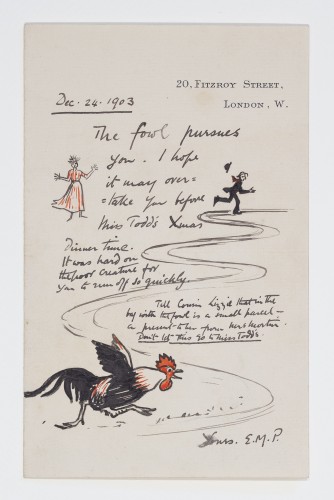 20, Fitzroy Street,
London, W.
Dec. 24. 1903
The fowl pursues
you. I hope
it may over=
=take you before
Miss Todd's Xmas
Dinner time.
It was hard on
the poor creature for
you to run off so quickly.
Tell Cousin Lizzie that in the
bag with the fowl is a small parcel —
a present to her from
Don't let this go to Miss Todd's.
Yours. E.M.P.